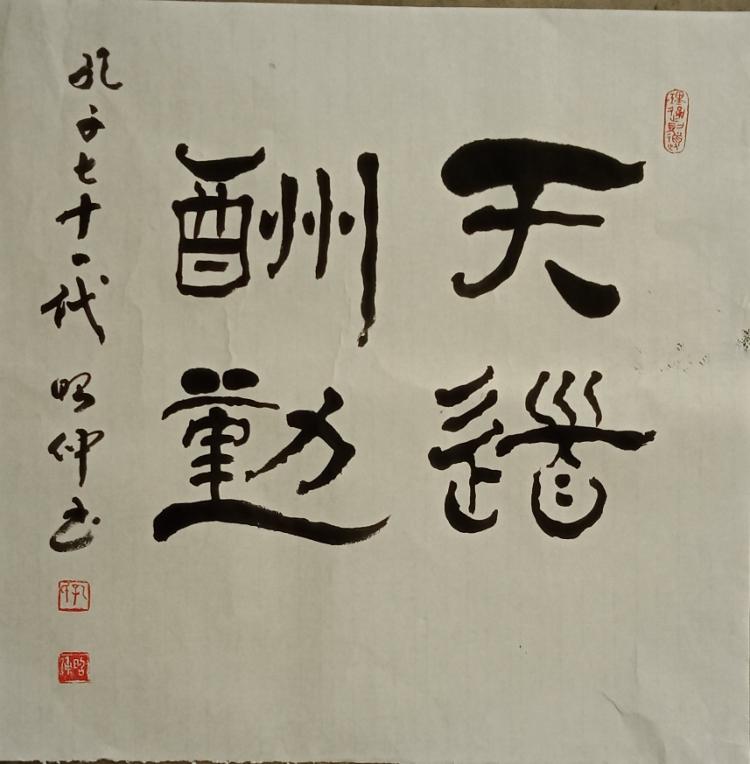 天道
酬勤
孔子七十一代昭仲书